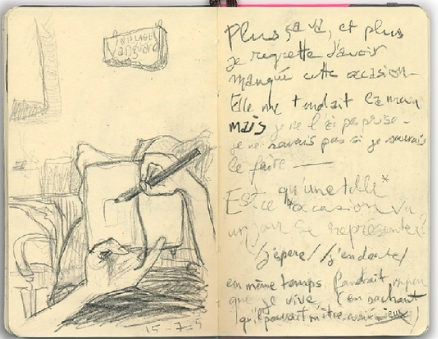 VILLAGE
Vanguard
15-7-
Plus ça va, et plus
je regrette d'avoir
manqué cette occasion-
Elle me tendait la main
mais je ne l'ai pas prise-
je ne savais pas si je saurais
le faire
Est
qu'une telle*
Est-ce *occasion va
un jour se représenter?
j'espère/ j'en doute/
en même temps faudrait
que je vive, en sachant
qu'